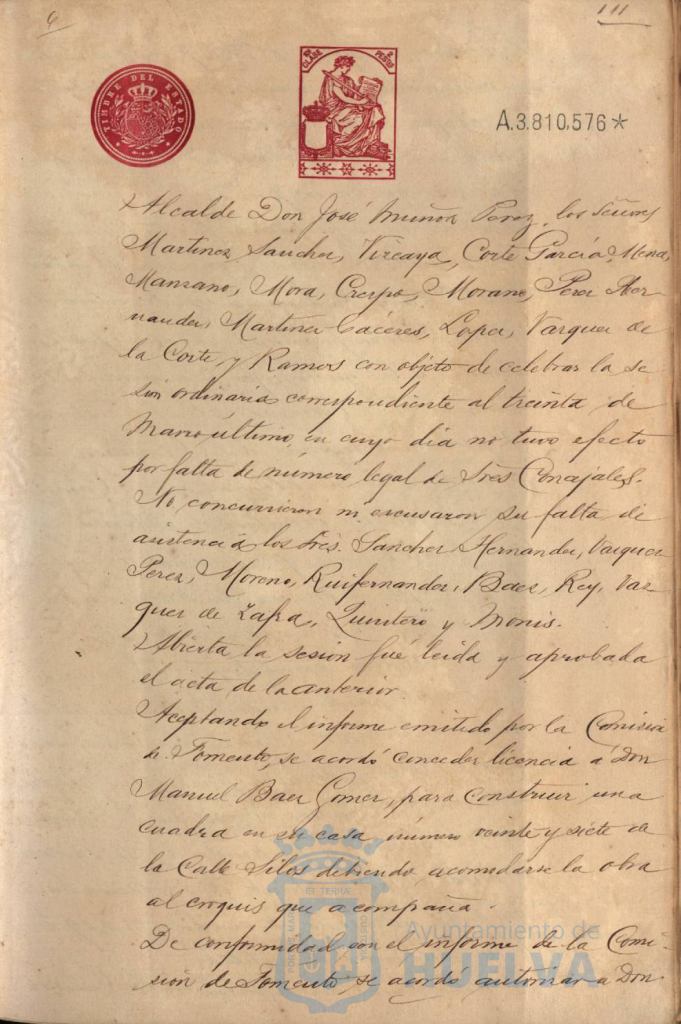 6
111
TIMBRE DEL ESTADO
CLASE
PESETAS
A.3.810.576*
Alcalde Don José Muñoz Perez, los Señores
Martinez Sanchez, Vizcaya, Corte Garcia, Mena,
Manzano, Mora, Crespo, Morano, Perez Her-
nandez, Martinez Cáceres, Lopez, Vazquez de
la Corte y Ramos con objeto de celebrar la se
sion ordinaria correspondiente al treinta de
Marzo último, en cuyo dia no tuvo efecto
por falta de número legal de Sres Concejales.
No concurrieron ni escusaron su falta de
asistencia los Sres. Sanchez Hernandez, Vazquez
Perez, Moreno, Ruifernandez, Baez, Rey, Vaz-
quez de Zafra, Quintero y Monis.
Abierta la sesion fué leida y aprobada
el acta de la anterior.
Aceptando el informe emitido por la Comision
de Fomento, se acordó conceder licencia á Don
Manuel Baez Gomez, para construir una
cuadra en su casa número veinte y siete de
la Calle Silos debiendo acomodarse la obra
al croquis que acompaña.
De conformidad con el informe de la Comi-
sion de Fomento, se acordó autorizar a Don
Ayuntamiento de
HUELVA